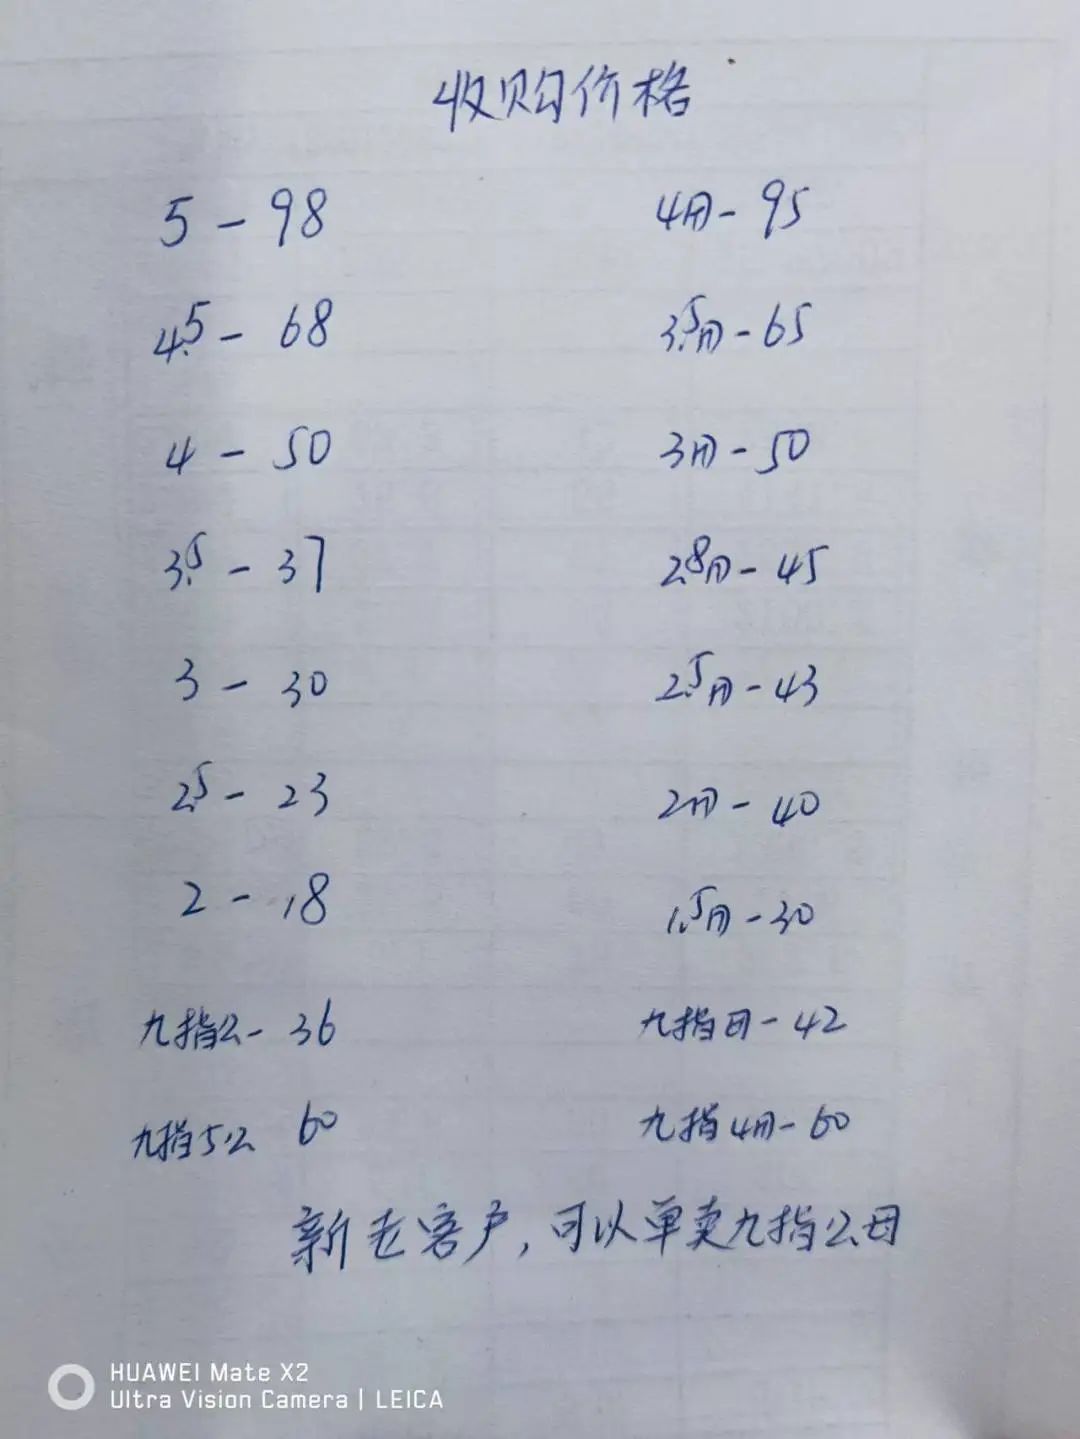 收购价格
5-98 4母-95
4.5-68 3.5母-65
4-50 3母-50
3.5-37 2.8母-45
3-30 2.5母-43
2.5-23 2母-40
2-18 1.5母-30
九指公-36 九指母-42
九指5公 60 九指4母-60
新老客户,可以单卖九指公母
HUAWEI Mate X2
Ultra Vision Camera | LEICA